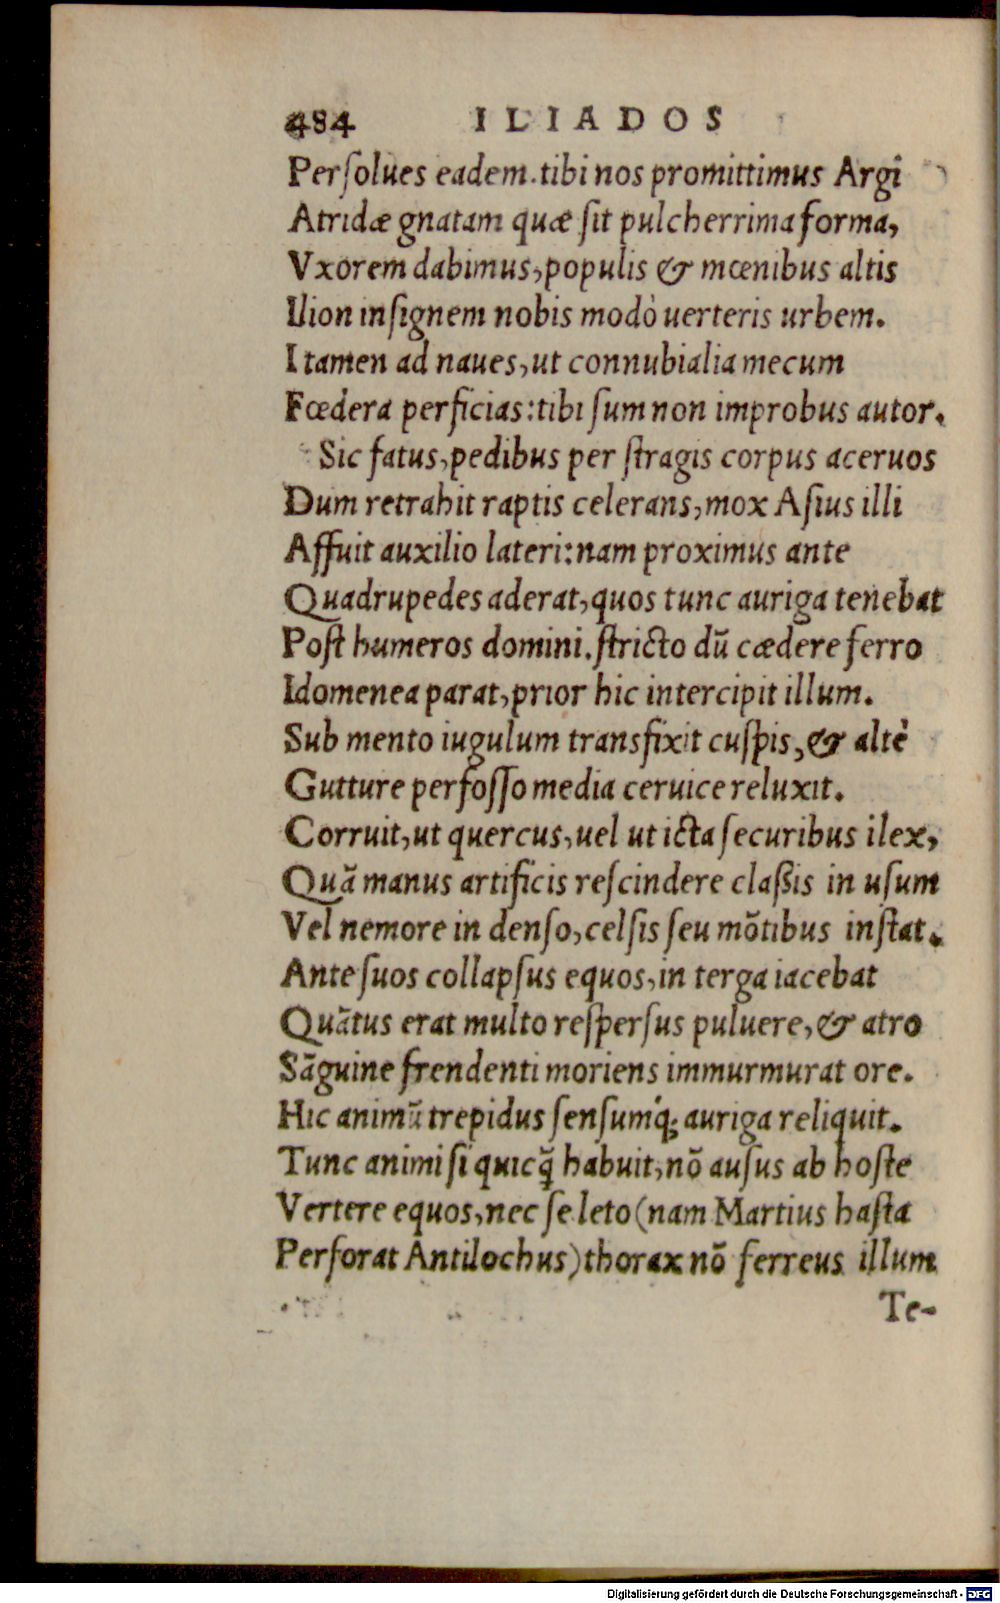 484 ILIADOS
Persolues eadem. tibi nos promittimus Argî
Atridæ gnatam quæ sit pulcherrima forma,
Vxorem dabimus, populis & mœnibus altis
Ilion insignem nobis modò uerteris urbem.
I tamen ad naues, ut connubialia mecum
Fœdera perficias: tibi sum non improbus autor.
Sic fatus, pedibus per stragis corpus aceruos
Dum retrahit raptis celerans, mox Asius illi
Affuit auxilio lateri: nam proximus ante
Quadrupedes aderat, quos tunc auriga tenebat
Post humeros domini. stricto dũ cædere ferro
Idomenea parat, prior hic intercipit illum.
Sub mento iugulum transfixit cuspis, & altè
Gutture perfosso media ceruice reluxit.
Corruit, ut quercus, uel ut icta securibus ilex,
Quã manus artificis rescindere claßis in usum
Vel nemore in denso, celsis seu mõtibus instat.
Ante suos collapsus equos, in terga iacebat
Quãtus erat multo respersus puluere, & atro
Sãguine frendenti moriens immurmurat ore.
Hic animũ trepidus sensumq́; auriga reliquit.
Tunc animi si quicq̃ habuit, nõ ausus ab hoste
Vertere equos, nec se leto (nam Martius hasta
Perforat Antilochus) thorax nõ ferreus illum
Te-
Digitalisierung gefördert durch die Deutsche Forschungsgemeinschaft - DFG